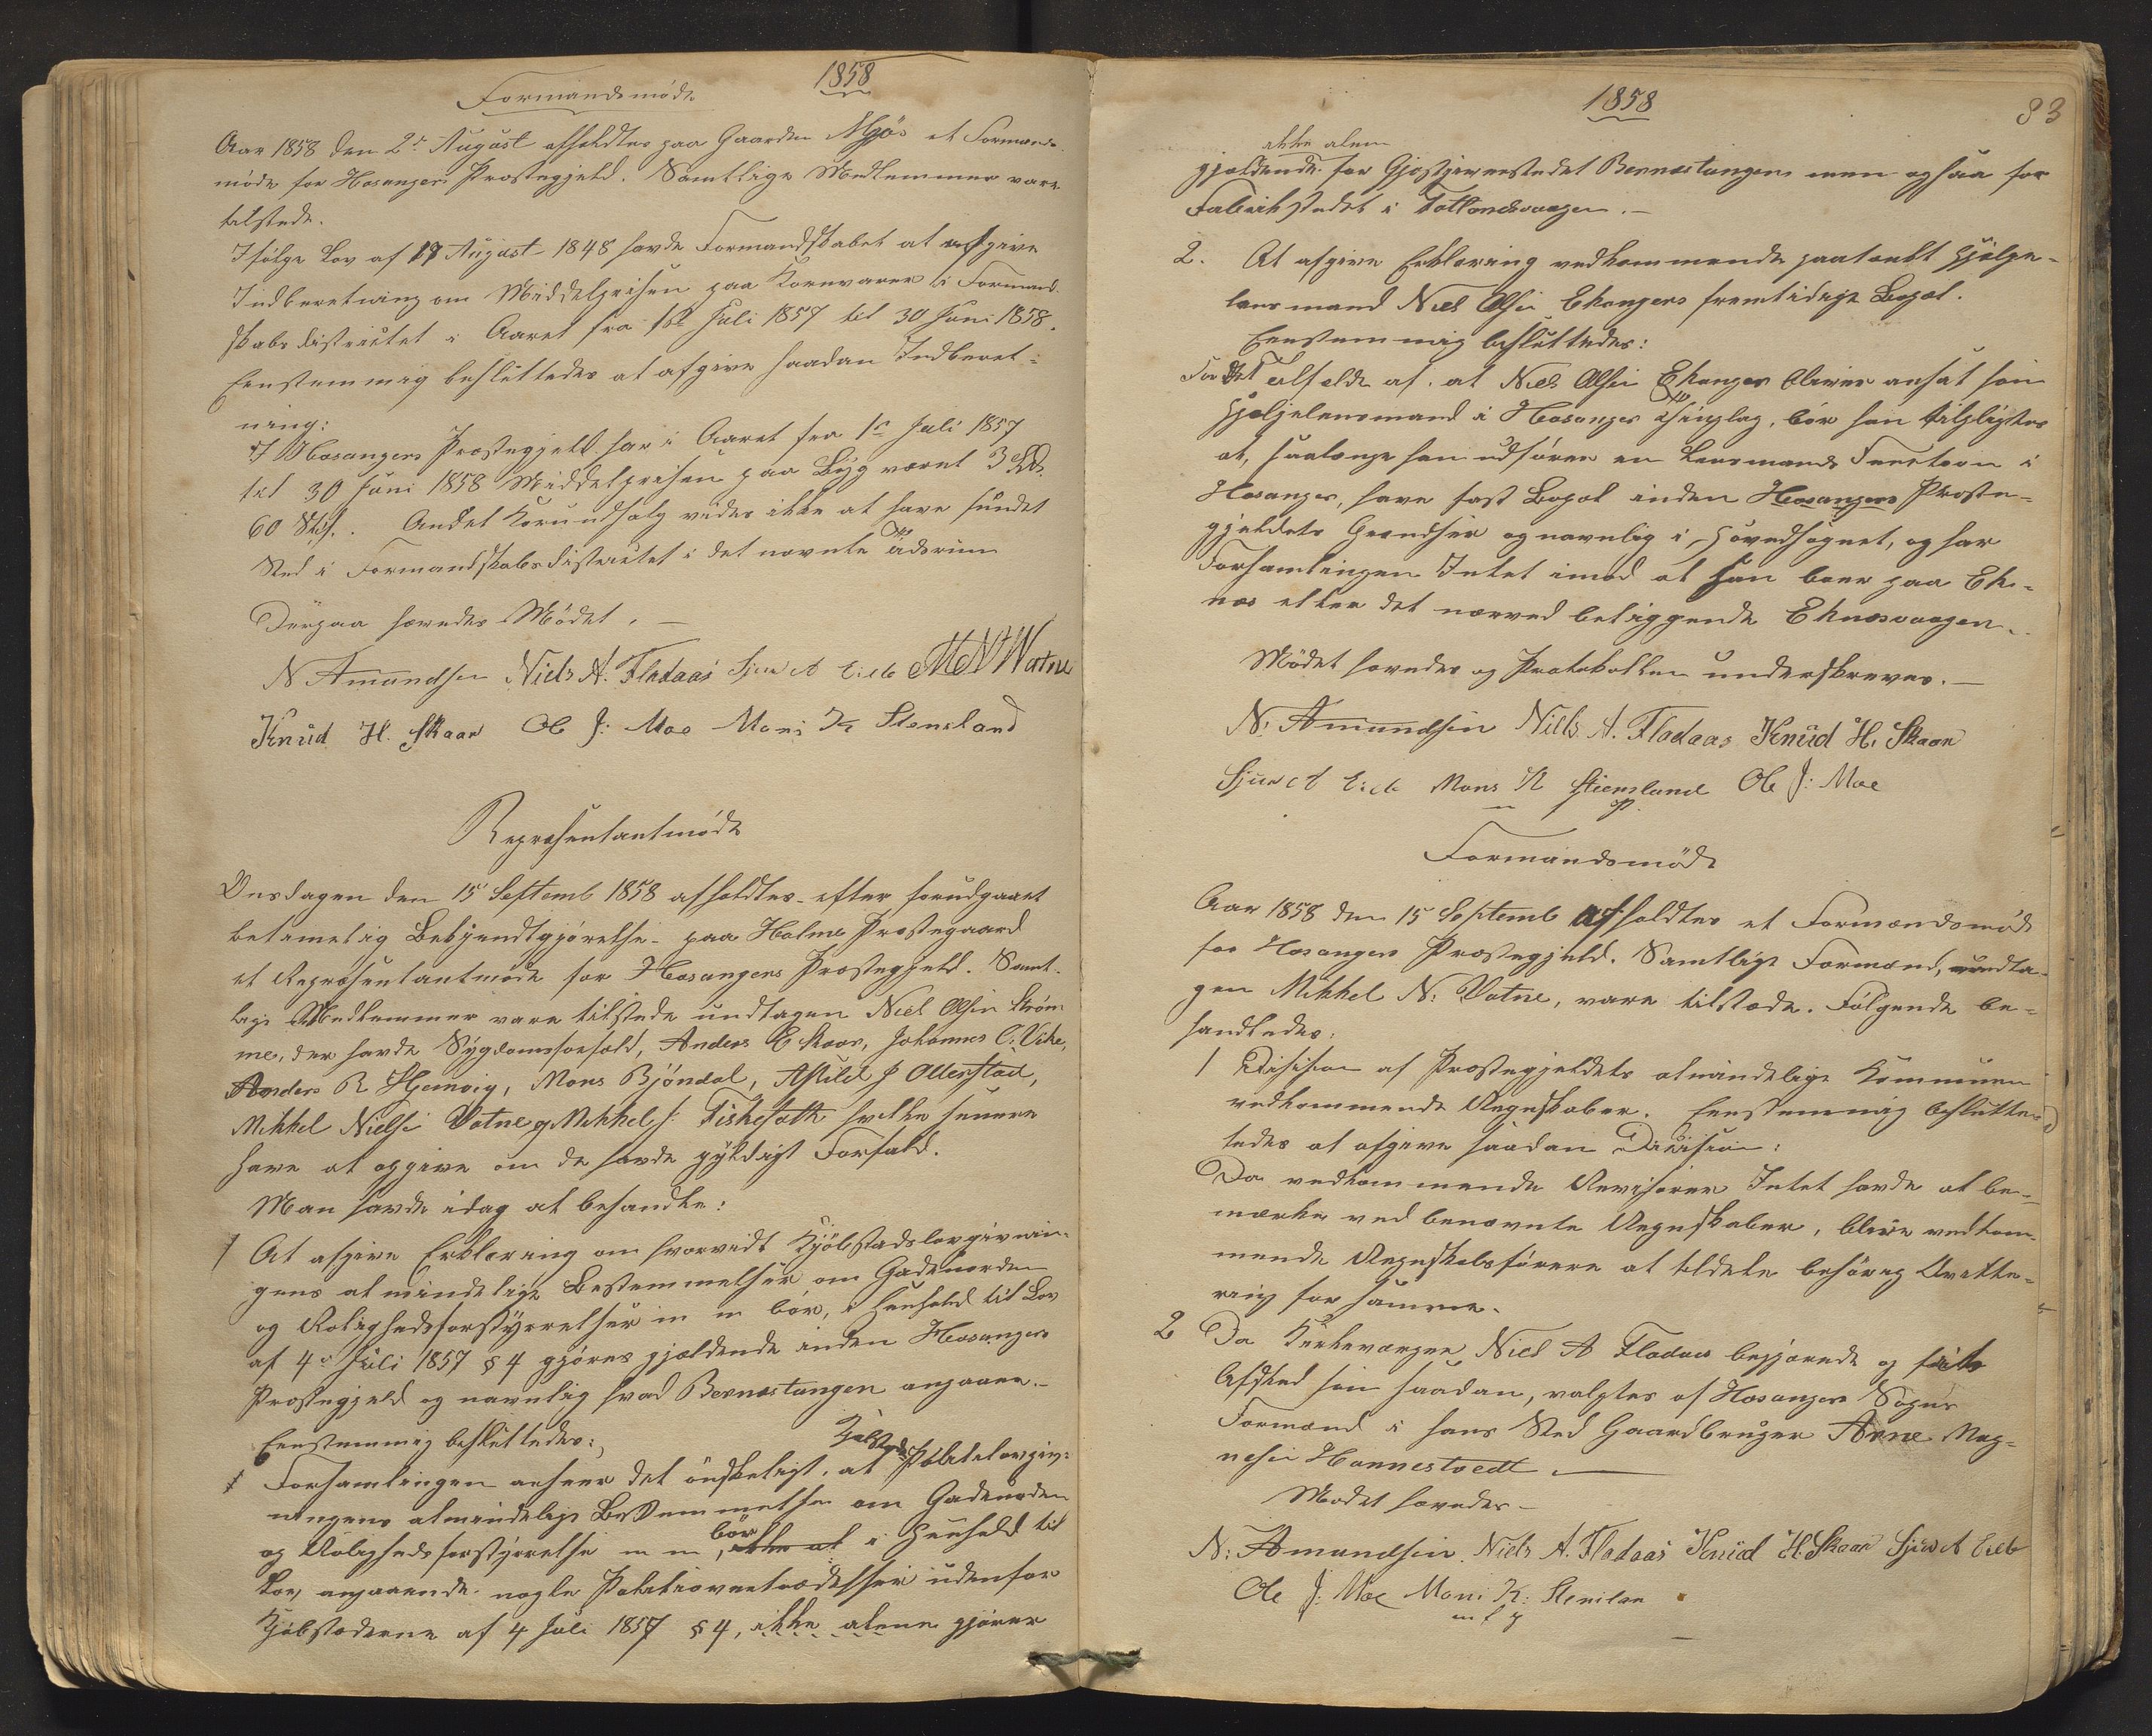 1858
Formandsmøde
Aar 1858 den 2den August afholdtes paa Gaarden Mjøs et Formands-
møde for Hosangers Præstegjeld. Samtlige Medlemmer vare
tilstede.
Ifølge Lov af 17 August 1848 havde Formandskabet at afgive
Indberetning om Middelprisen paa Kornvarer i Formand-
skabsdistrictet i Aaret fra 1ste Juli 1857 til 30 Juni 1858.
Eenstemmig besluttedes at afgive saadan Indberet-
ning:
I Hosangers Præstegjeld har i Aaret fra 1ste Juli 1857
til 30 Juni 1858 Middelprisen paa Byg været 3 Spd.
60 Skill. Andet Kornudsalg vides ikke at have fundet
Sted i Formandskabsdistrictet i det nævnte Tidsrum
Derpaa hævedes Mødet. —
N Amundsen Niels A. Fladaas Sjur A Eide M N Watne
Knud H. Skaar Ole J: Moe Mons K Stensland
Repræsentantmøde
Onsdagen den 15 Septemb 1858 afholdtes – efter forudgaaet
betimelig Bekjendtgjørelse – paa Holme Præstegaard
et Repræsentantmøde for Hosangers Præstegjeld. Samt-
lige Medlemmer vare tilstede undtagen Niels Olsen Strøm-
me, der havde Sygdomsforfald, Anders E Skaar, Johannes O. Vike,
Anders R Hjemvig, Mons Bjöndal, Askild J Ollerstad,
Mikkel Nielsen Vatne og Mikkel J. Fiskesæth hvilke senere
have at opgive om de havde gyldigt Forfald.
Man havde idag at behandle:
1 At afgive Erklæring om hvorvidt Kjöbstadslovgivnin-
gens almindelige Bestemmelser om Gadeuorden
og Rolighedsforstyrrelser m m bør, i Henhold til Lov
af 4de Juli 1857 § 4 gjøres gjældende inden Hosangers
Præstegjeld og navnlig hvad Bernestangen angaaer. –
Eenstemmig besluttedes:
Kjøbstads
1 Forsamlingen anseer det ønskeligt, at Politilovgiv-
ningens almindelige Bestemmelse om Gadeuorden
bør
og Rolighedsforstyrrelse m m, ikke at i Henhold til
Lov, angaaende nogle Politiovertrædelser udenfor
Kjøbstæderne af 4 Juli 1857 § 4, ikke alene gjøres
1858
83
ikke alene
gjældende for Gjæstgiverstedet Bernestangen men ogsaa for
Fabrikstedet i Tottlandsvaagen. –
2. At afgive Erklæring vedkommende paatænkt Hjælpe-
lensmand Niels Olsen Ekangers fremtidige Bopæl.
Eenstemmig besluttedes:
For det Tilfælde af, at Niels Olsen Ekanger bliver ansat som
Hjælpelensmand i Hosanger Thinglag, bör han tilpligtes
at, saalænge han udfører en Lensmands Function i
Hosanger, have fast Bopæl inden Hosangers Præste-
gjeldets Grændser og navnlig i Hovedsognet, og har
Forsamlingen Intet imod at han boer paa Ek-
næs eller det nærved beliggende Eknæsvaagen.
Mødet hævedes og Protokollen underskreves. —
N. Amundsen Niels A. Fladaas Knud H. Skaar
Sjur A Eide Mons K Stiensland Ole J: Moe
Formandsmøde
Aar 1858 den 15 Septemb afholdtes et Formandsmøde
for Hosangers Præstegjeld. Samtlige Formænd, undta-
gen Mikkel N: Vatne, vare tilstæde. Følgende be-
handledes:
1 Decision af Præstegjeldets almindelige Kommunen
vedkommende Regnskaber. Eenstemmig beslutte-
tedes at afgive saadan Decision:
Da vedkommende Revisorer Intet havde at be-
mærke ved benævnte Regnskaber, blive vedkom-
mende Regnskabsførere at tildele behörig Qvitte-
ring for samme.
2 Da Kirkeværgen Niels A Fladaas begjærede og fik
Afsked som saadan, valgtes af Hosangers Sogns
Formænd i hans Sted Gaardbruger Arne Mag-
nesen Hannestvedt. —
Mødet hævedes –
N: Amundsen. Niels A. Fladaas Knud H. Skaar Sjur A Eide
Ole J: Moe Mons K: Stenslan
m f p